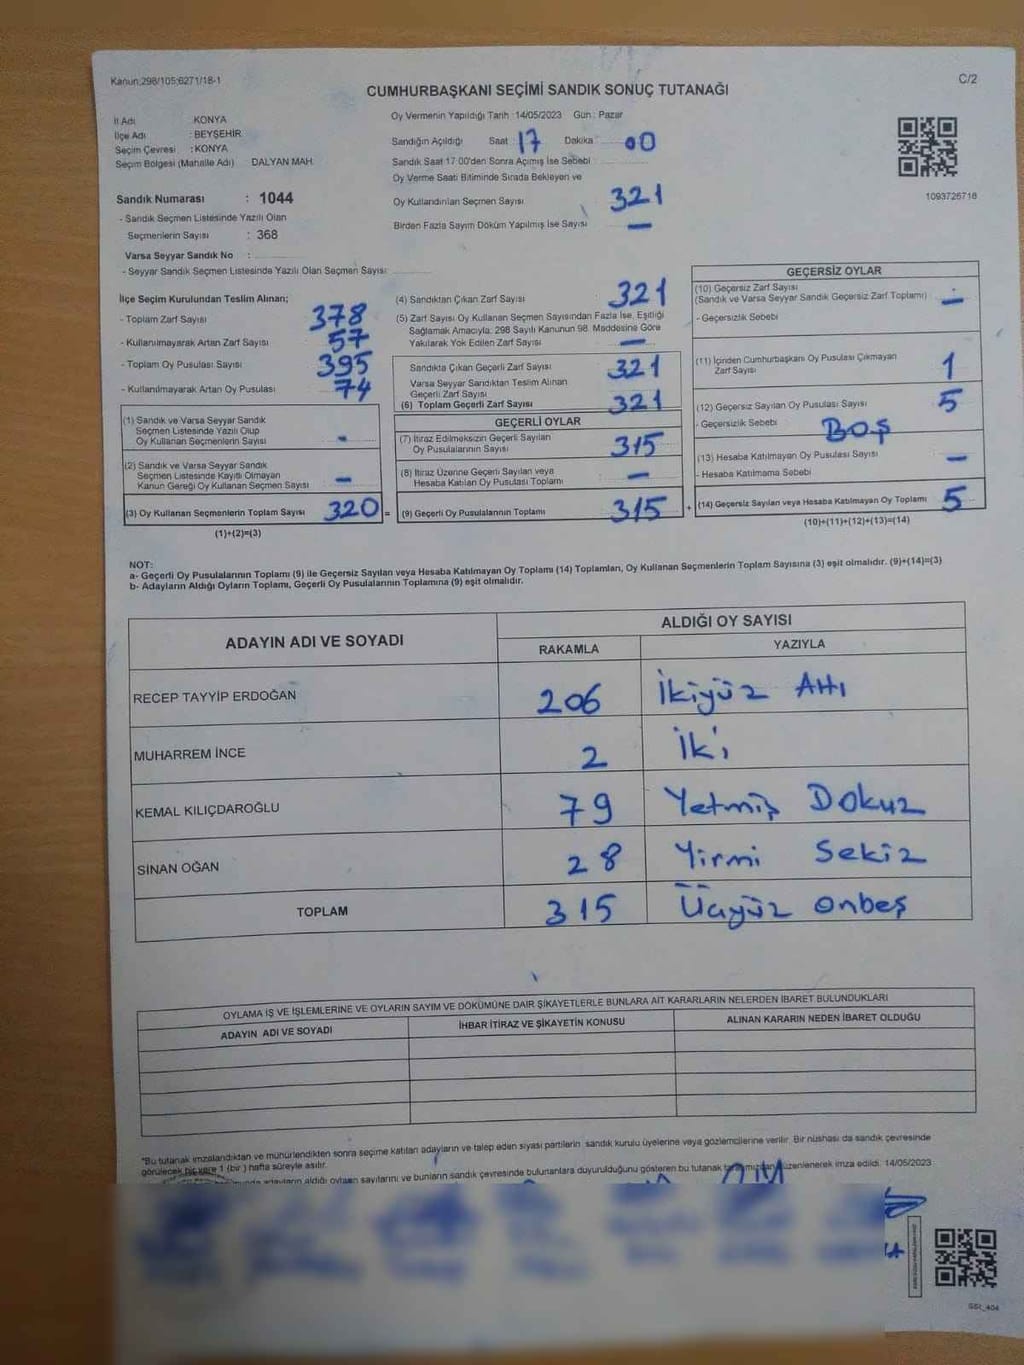 Kanun;298/105;6271/18-1
C/2
CUMHURBAŞKANI SEÇİMİ SANDIK SONUÇ TUTANAĞI
İl Adı KONYA
İlçe Adı : BEYŞEHİR
Seçim Çevresi : KONYA
Seçim Bölgesi (Mahalle Adı) DALYAN MAH.
Oy Vermenin Yapıldığı Tarih :14/05/2023 Gün : Pazar
Sandığın Açıldığı Saat 17 Dakika 00
Sandık Saat 17:00'den Sonra Açımış İse Sebebi
Oy Verme Saati Bitiminde Sırada Bekleyen ve
Oy Kullandırılan Seçmen Sayısı 321
Birden Fazla Sayım Döküm Yapılmış İse Sayısı —
1093726718
Sandık Numarası : 1044
- Sandık Seçmen Listesinde Yazılı Olan
Seçmenlerin Sayısı : 368
Varsa Seyyar Sandık No :
- Seyyar Sandık Seçmen Listesinde Yazılı Olan Seçmen Sayısı
İlçe Seçim Kurulundan Teslim Alınan;
- Toplam Zarf Sayısı 378
- Kullanılmayarak Artan Zarf Sayısı 57
- Toplam Oy Pusulası Sayısı 395
- Kullanılmayarak Artan Oy Pusulası 74
(1) Sandık ve Varsa Seyyar Sandık
Seçmen Listesinde Yazılı Olup
Oy Kullanan Seçmenlerin Sayısı -
(2) Sandık ve Varsa Seyyar Sandık
Seçmen Listesinde Kayıtlı Olmayan
Kanun Gereği Oy Kullanan Seçmen Sayısı —
(3) Oy Kullanan Seçmenlerin Toplam Sayısı 320 =
(1)+(2)=(3)
(4) Sandıktan Çıkan Zarf Sayısı 321
(5) Zarf Sayısı Oy Kullanan Seçmen Sayısından Fazla İse, Eşitliği
Sağlamak Amacıyla, 298 Sayılı Kanunun 98. Maddesine Göre
Yakılarak Yok Edilen Zarf Sayısı —
Sandıkta Çıkan Geçerli Zarf Sayısı 321
Varsa Seyyar Sandıktan Teslim Alınan
Geçerli Zarf Sayısı
(6) Toplam Geçerli Zarf Sayısı 321
GEÇERLİ OYLAR
(7) İtiraz Edilmeksizin Geçerli Sayılan
Oy Pusulalarının Sayısı 315
(8) İtiraz Üzerine Geçerli Sayılan veya
Hesaba Katılan Oy Pusulası Toplamı —
(9) Geçerli Oy Pusulalarının Toplamı 315 +
GEÇERSİZ OYLAR
(10) Geçersiz Zarf Sayısı
(Sandık ve Varsa Seyyar Sandık Geçersiz Zarf Toplamı) —
- Geçersizlik Sebebi
(11) İçinden Cumhurbaşkanı Oy Pusulası Çıkmayan
Zarf Sayısı 1
(12) Geçersiz Sayılan Oy Pusulası Sayısı 5
- Geçersizlik Sebebi BOŞ
(13) Hesaba Katılmayan Oy Pusulası Sayısı —
- Hesaba Katılmama Sebebi
(14) Geçersiz Sayılan veya Hesaba Katılmayan Oy Toplamı 5
(10)+(11)+(12)+(13)=(14)
NOT:
a- Geçerli Oy Pusulalarının Toplamı (9) ile Geçersiz Sayılan veya Hesaba Katılmayan Oy Toplamı (14) Toplamları, Oy Kullanan Seçmenlerin Toplam Sayısına (3) eşit olmalıdır. (9)+(14)=(3)
b- Adayların Aldığı Oyların Toplamı, Geçerli Oy Pusulalarının Toplamına (9) eşit olmalıdır.
ADAYIN ADI VE SOYADI
ALDIĞI OY SAYISI
RAKAMLA YAZIYLA
RECEP TAYYİP ERDOĞAN 206 İkiyüz Altı
MUHARREM İNCE 2 İki
KEMAL KILIÇDAROĞLU 79 Yetmiş Dokuz
SİNAN OĞAN 28 Yirmi Sekiz
TOPLAM 315 Üçyüz onbeş
OYLAMA İŞ VE İŞLEMLERİNE VE OYLARIN SAYIM VE DÖKÜMÜNE DAİR ŞİKAYETLERLE BUNLARA AİT KARARLARIN NELERDEN İBARET BULUNDUKLARI
ADAYIN ADI VE SOYADI İHBAR İTİRAZ VE ŞİKAYETİN KONUSU ALINAN KARARIN NEDEN İBARET OLDUĞU
*Bu tutanak imzalandıktan ve mühürlendikten sonra seçime katılan adayların ve talep eden siyasi partilerin sandık kurulu üyelerine veya gözlemcilerine verilir. Bir nüshası da sandık çevresinde
görülecek bir yere 1 (bir) hafta süreyle asılır.
adayların aldığı oyların sayılarını ve bunların sandık çevresinde bulunanlara duyurulduğunu gösteren bu tutanak düzenlenerek imza edildi. 14/05/2023